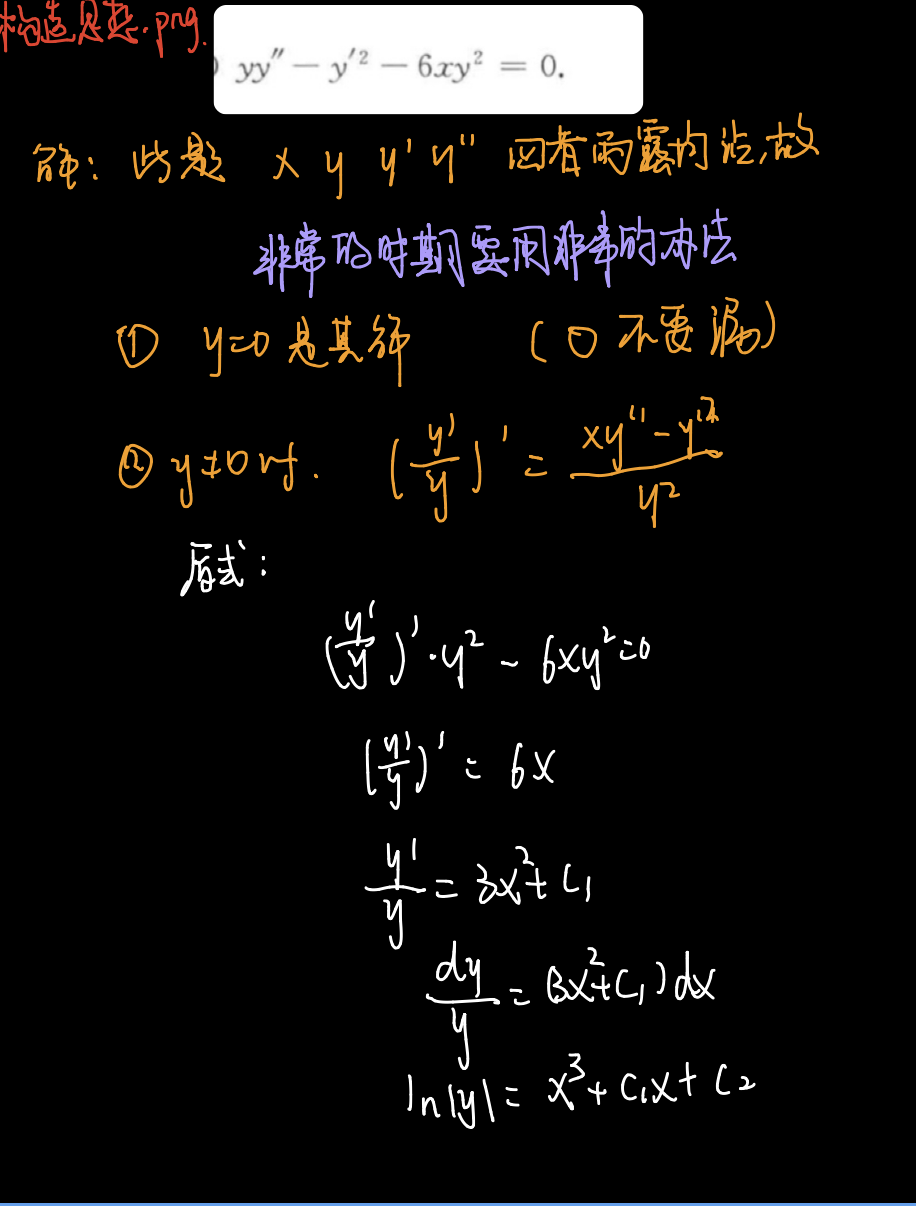 构造思想.png.
yy″ − y′² − 6xy² = 0.
解：此题 x y y′ y″ 四者雨露均沾,故
非常的时期要用非常的办法
① y=0 是其解 (0不要漏)
② y≠0时. (y′/y)′ = (xy″−y′²)/y²
原式：
(y′/y)′·y² − 6xy²=0
(y′/y)′ = 6x
y′/y = 3x²+C₁
dy/y = (3x²+C₁)dx
ln|y| = x³+C₁x+C₂